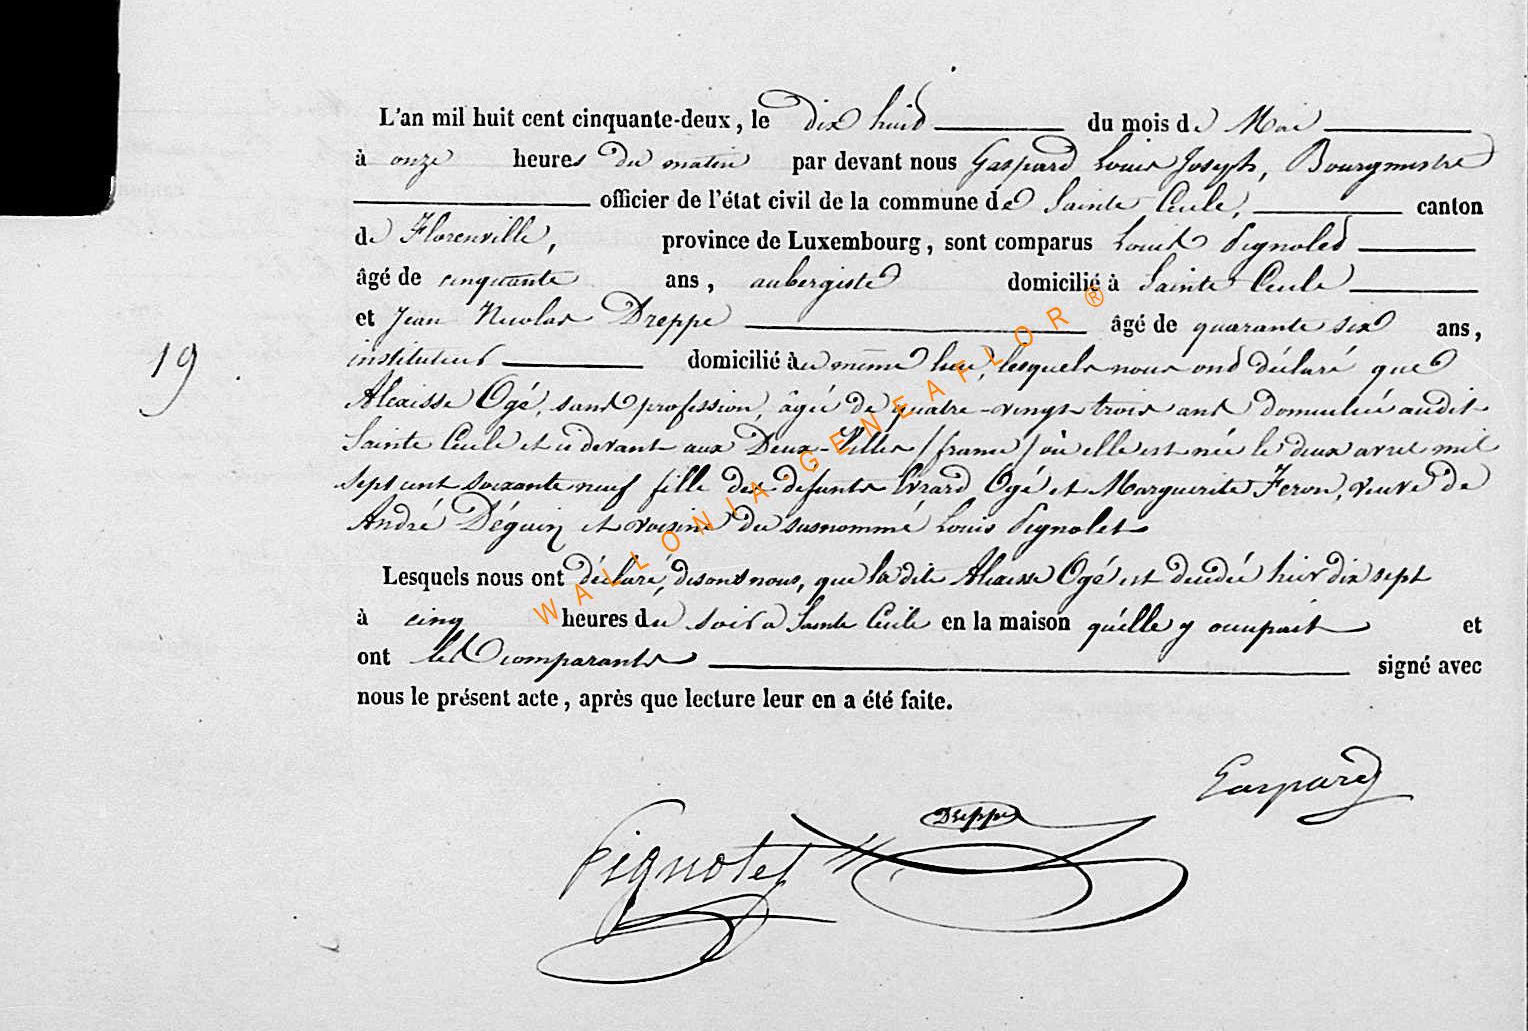 L'an mil huit cent cinquante-deux, le dix huit du mois de Mai
à onze heures du matin par devant nous Gaspard Louis Joseph, Bourgmestre
officier de l'état civil de la commune de Sainte Cécile, canton
de Florenville, province de Luxembourg, sont comparus Louis Pignolet
âgé de cinquante ans, aubergiste domicilié à Sainte Cécile
et Jean Nicolas Dreppe âgé de quarante six ans,
19
instituteur domicilié au même lieu, lesquels nous ont déclaré que
Alexisse Ogé, sans profession, âgée de quatre-vingt trois ans domiciliée audit
Sainte Cécile et ci devant aux Deux-Villes (france) où elle est née le deux avril mil
sept cent soixante neuf fille des defunts Evrard Ogé et Marguerite Feron, veuve de
André Déguin et voisine du susnommé Louis Pignolet
Lesquels nous ont déclaré, disons nous, que la dite Alexisse Ogé est decedée hier dix sept
à cinq heures du soir a Sainte Cécile en la maison qu'elle y occupait et
ont les comparants signé avec
nous le présent acte, après que lecture leur en a été faite.
Gaspard
Dreppe
Pignolet
WALLONIA-GENEAFLOR®